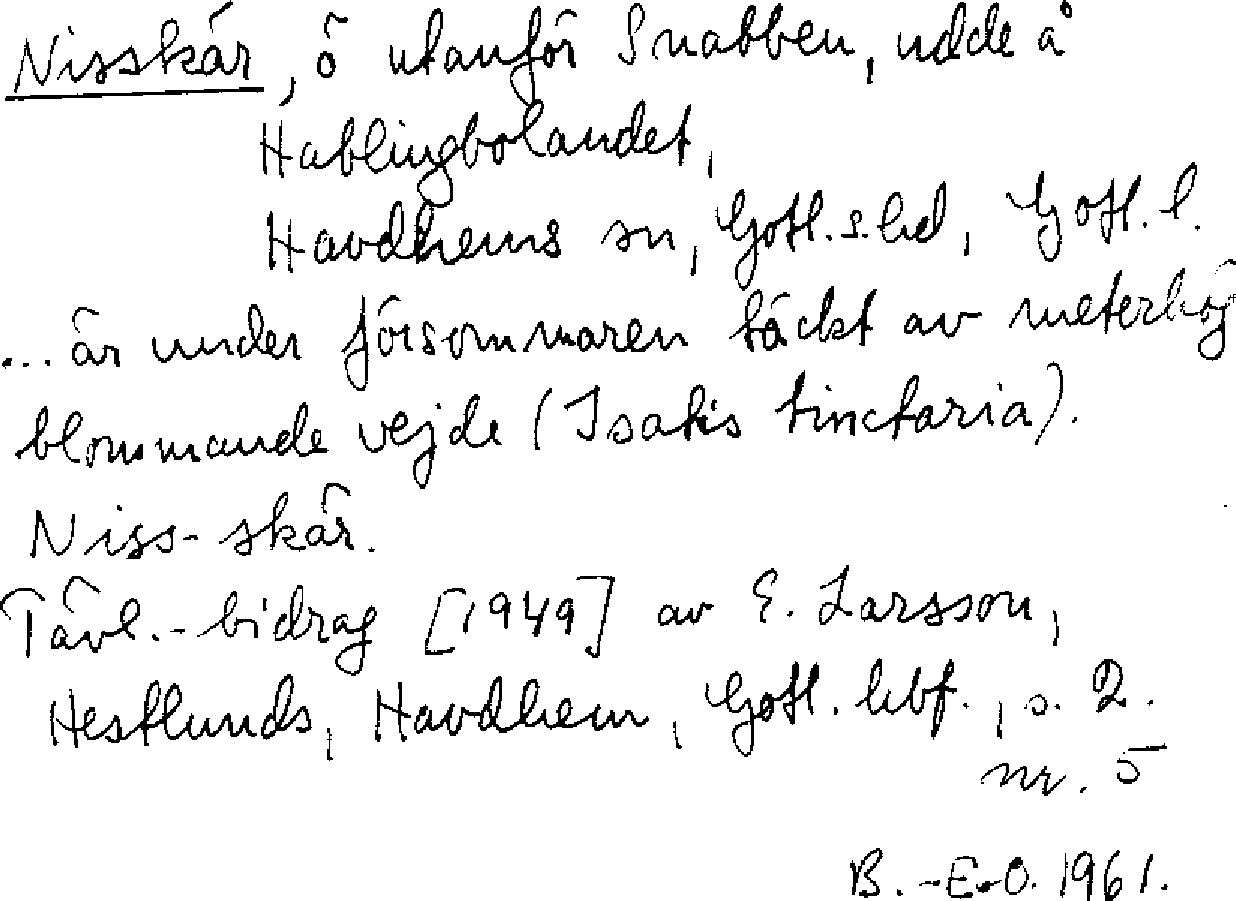 Nisskär, ö utanför Snabben, udde å
Hablingbolandet,
Havdhems sn, Gotl. s. hd, Gotl. l.
... är under försommaren täckt av meterhög
blommande vejde (Isatis tinctaria).
Niss-skär.
Tävl.-bidrag [1949] av E. Larsson,
Hestlunds, Havdhem, Gotl. hbf., s. 2.
nr. 5
B.-E.O. 1961.